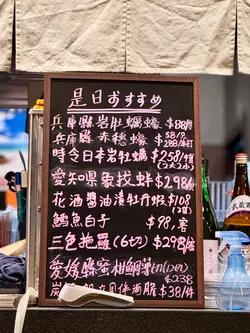 是日おすすめ
兵庫縣岩牡蠣蠔 $88/件
兵庫縣 赤穗蠔 58/只
288/半打
時令日本岩牡蠣 $258/1隻
愛知県象拔蚌 $298/
花酒醬油漬牡丹蝦 $108
鱈魚白子 $98/客
三色拖羅(6切) $298/客
愛媛縣蜜柑鯛 (12切)
$238
$38/件